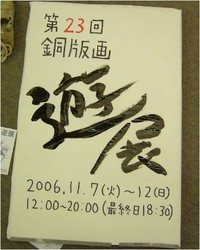 第23回
銅版画
遊展
2006.11.7(火)～12(日)
12:00～20:00(最終日18:30)